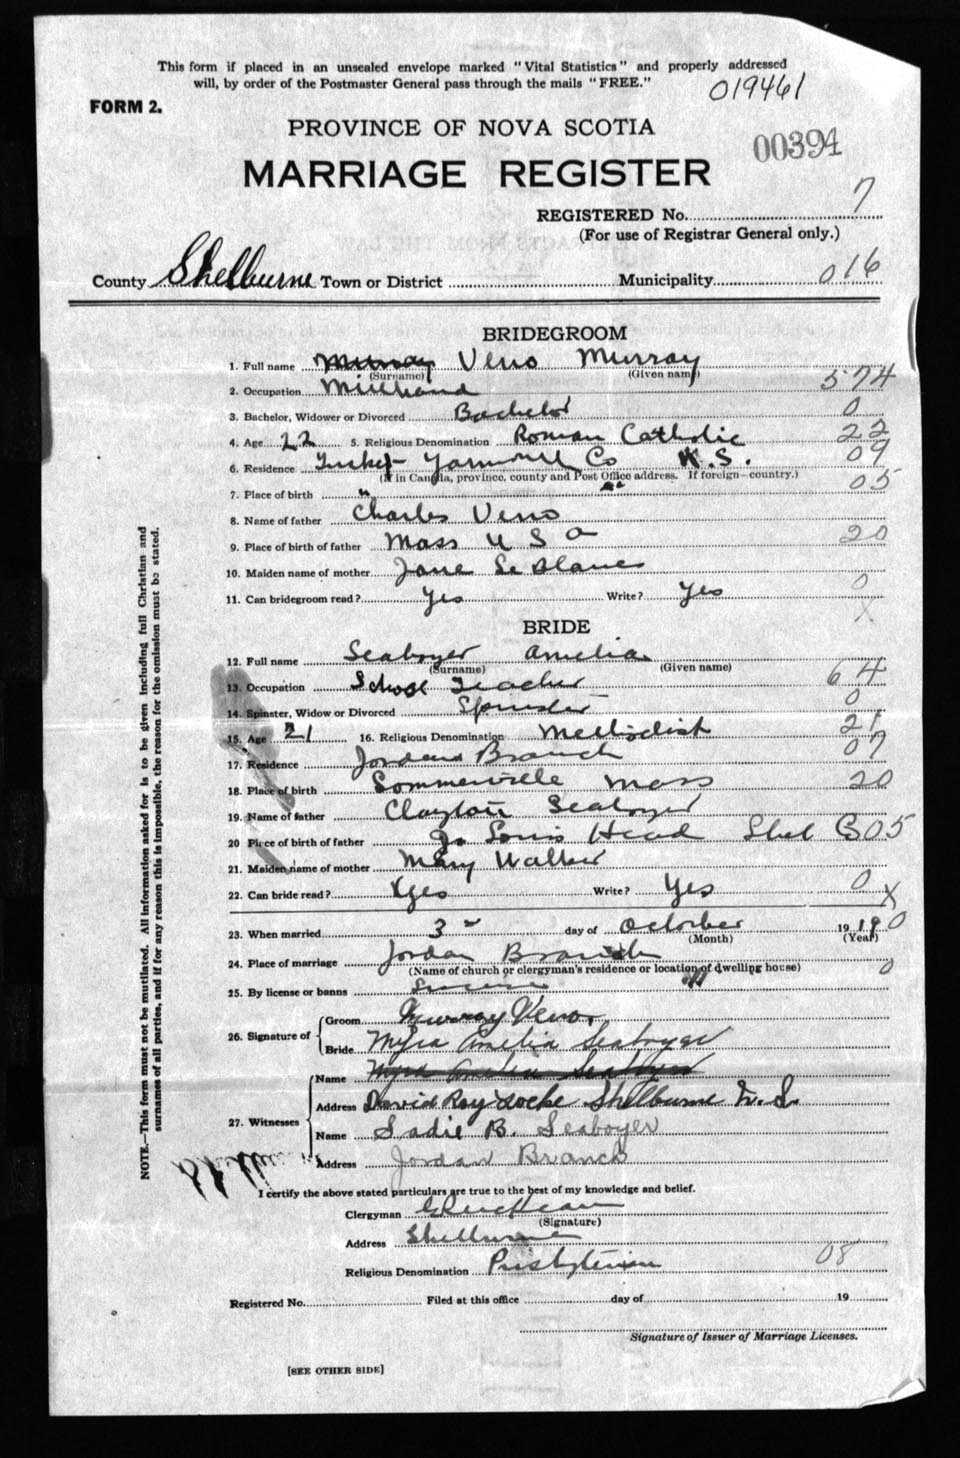 This form if placed in an unsealed envelope marked "Vital Statistics" and properly addressed
will, by order of the Postmaster General pass through the mails "FREE."
019461
FORM 2.
PROVINCE OF NOVA SCOTIA
00394
MARRIAGE REGISTER
REGISTERED No. 7
(For use of Registrar General only.)
County Shelburne Town or District Municipality 016
BRIDEGROOM
1. Full name Murray Veno Murray
(Surname) (Given name)
2. Occupation Millhand 574
3. Bachelor, Widower or Divorced Bachelor 0
4. Age 22 5. Religious Denomination Roman Catholic 22
6. Residence Tusket Yarmouth Co N.S. 09
(If in Canada, province, county and Post Office address. If foreign—country.)
7. Place of birth " " 05
8. Name of father Charles Veno
9. Place of birth of father Mass U S a 20
10. Maiden name of mother Jane Le Blanc
11. Can bridegroom read? Yes Write? Yes 0
X
BRIDE
12. Full name Seaboyer Amelia
(Surname) (Given name)
13. Occupation School Teacher 64
14. Spinster, Widow or Divorced Spinster 0
15. Age 21 16. Religious Denomination Methodist 21
17. Residence Jordan Branch 07
18. Place of birth Sommerville Mass 20
19. Name of father Clayton Seaboyer
20 Place of birth of father Louis Head Shel Co 05
21. Maiden name of mother Mary Walker
22. Can bride read? Yes Write? Yes 0
X
23. When married 3 day of October 19 19 0
(Month) (Year)
24. Place of marriage Jordan Branch
(Name of church or clergyman's residence or location of dwelling house) 0
25. By license or banns License
26. Signature of Groom Murray Veno.
Bride Myra Amelia Seaboyer
27. Witnesses Name Myra Amelia Seaboyer
Address David Roy Locke Shelburne N.S.
Name Sadie B. Seaboyer
Address Jordan Branch
I certify the above stated particulars are true to the best of my knowledge and belief.
Clergyman
(Signature)
Address Shelburne
Religious Denomination Presbyterian 08
Registered No. Filed at this office day of 19
Signature of Issuer of Marriage Licenses.
[SEE OTHER SIDE]
NOTE.—This form must not be mutilated. All information asked for is to be given including full Christian and
surnames of all parties, and if for any reason this is impossible, the reason for the omission must be stated.